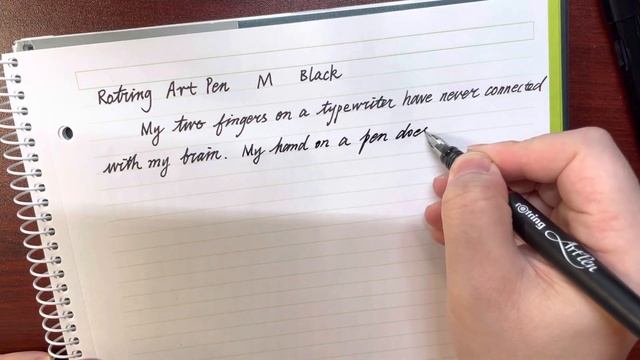 Rotring Art Pen M Black
My two fingers on a typewriter have never connected
with my brain. My hand on a pen does
rotring ArtPen